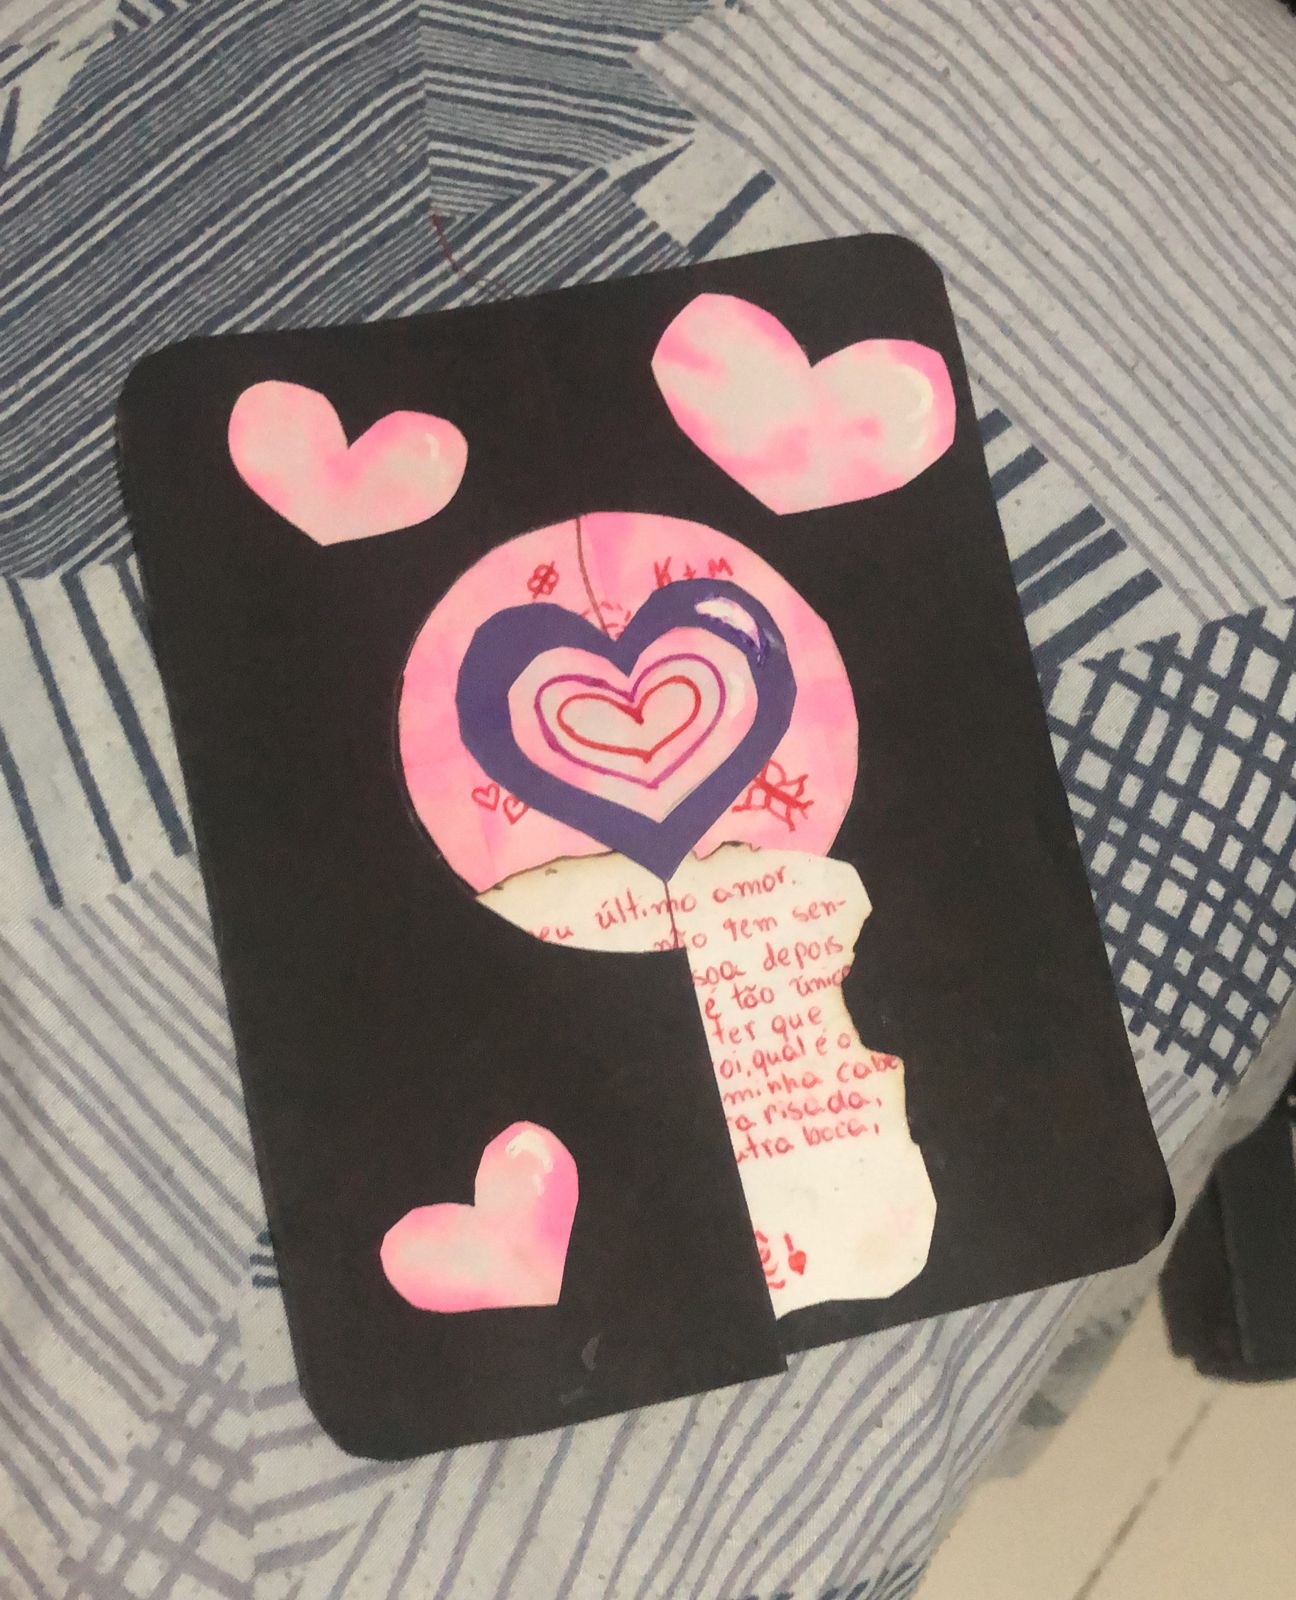 K + M
eu último amor.
não tem sen-
soa depois
é tão única
ter que
oi, qual é o
minha cabe
a risada,
utra boca,
ê!